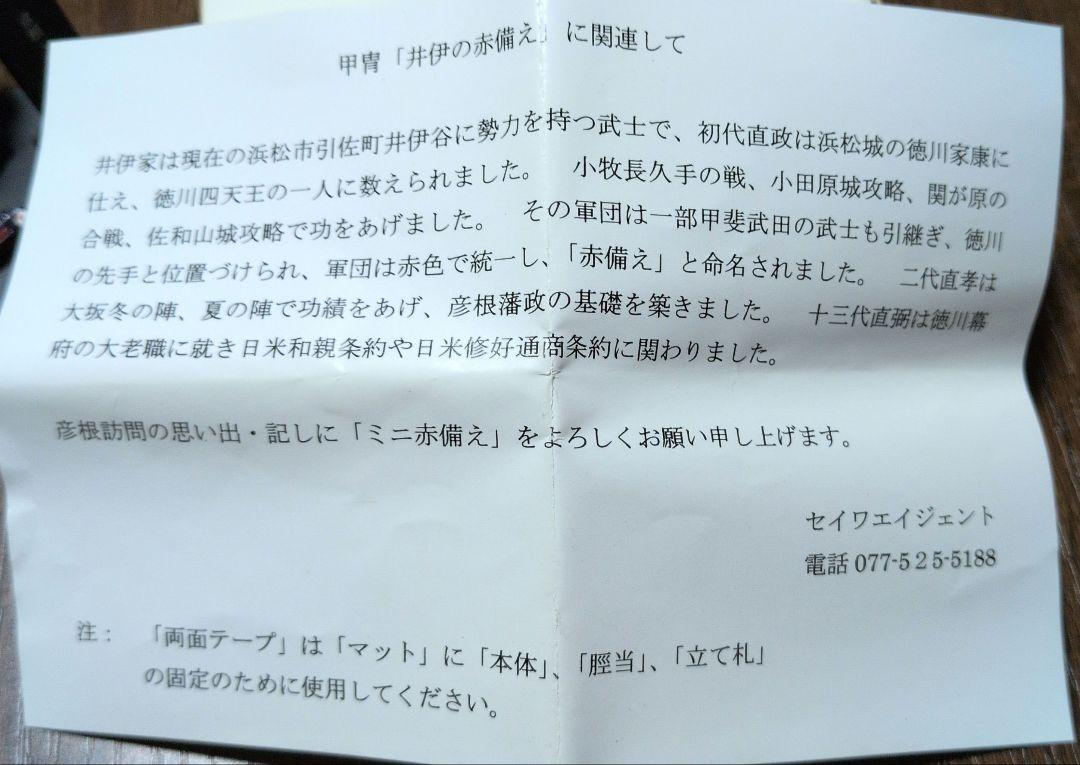 甲冑「井伊の赤備え」に関連して
井伊家は現在の浜松市引佐町井伊谷に勢力を持つ武士で、初代直政は浜松城の徳川家康に
仕え、徳川四天王の一人に数えられました。　小牧長久手の戦、小田原城攻略、関が原の
合戦、佐和山城攻略で功をあげました。　その軍団は一部甲斐武田の武士も引継ぎ、徳川
の先手と位置づけられ、軍団は赤色で統一し、「赤備え」と命名されました。　二代直孝は
大坂冬の陣、夏の陣で功績をあげ、彦根藩政の基礎を築きました。　十三代直弼は徳川幕
府の大老職に就き日米和親条約や日米修好通商条約に関わりました。
彦根訪問の思い出・記しに「ミニ赤備え」をよろしくお願い申し上げます。
セイワエイジェント
電話 077-525-5188
注：　「両面テープ」は「マット」に「本体」、「脛当」、「立て札」
の固定のために使用してください。